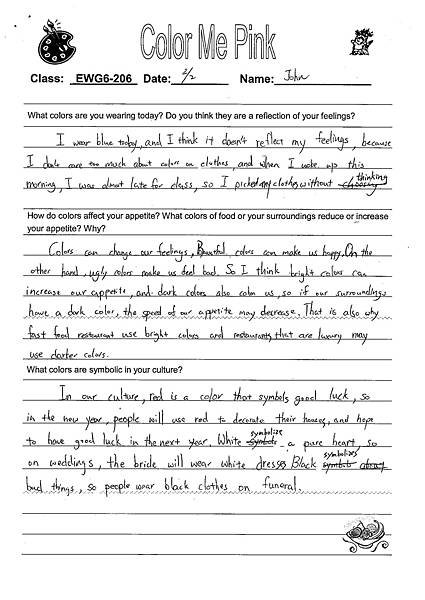 Color Me Pink
Class: EWG6-206 Date: 2/2 Name: John
What colors are you wearing today? Do you think they are a reflection of your feelings?
I wear blue today, and I think it doesn't reflect my feelings, because
I don't care too much about colors on clothes, and when I woke up this
thinking
morning, I was almost late for class, so I picked my clothes without choosing
How do colors affect your appetite? What colors of food or your surroundings reduce or increase
your appetite? Why?
Colors can change our feelings, Beautiful colors can make us happy. On the
other hand, ugly colors make us feel bad. So I think bright colors can
increase our appetite, and dark colors also calm us, so if our surroundings
have a dark color, the speed of our appetite may decrease. That is also why
fast food restaurant use bright colors and restaurants that are luxury may
use darker colors.
What colors are symbolic in your culture?
In our culture, red is a color that symbols good luck, so
in the new year, people will use red to decorate their houses, and hope
symbolizes
to have good luck in the next year. White symbols a pure heart, so
symbolizes
on weddings, the bride will wear white dress. Black symbols about
bad things, so people wear black clothes on funeral.